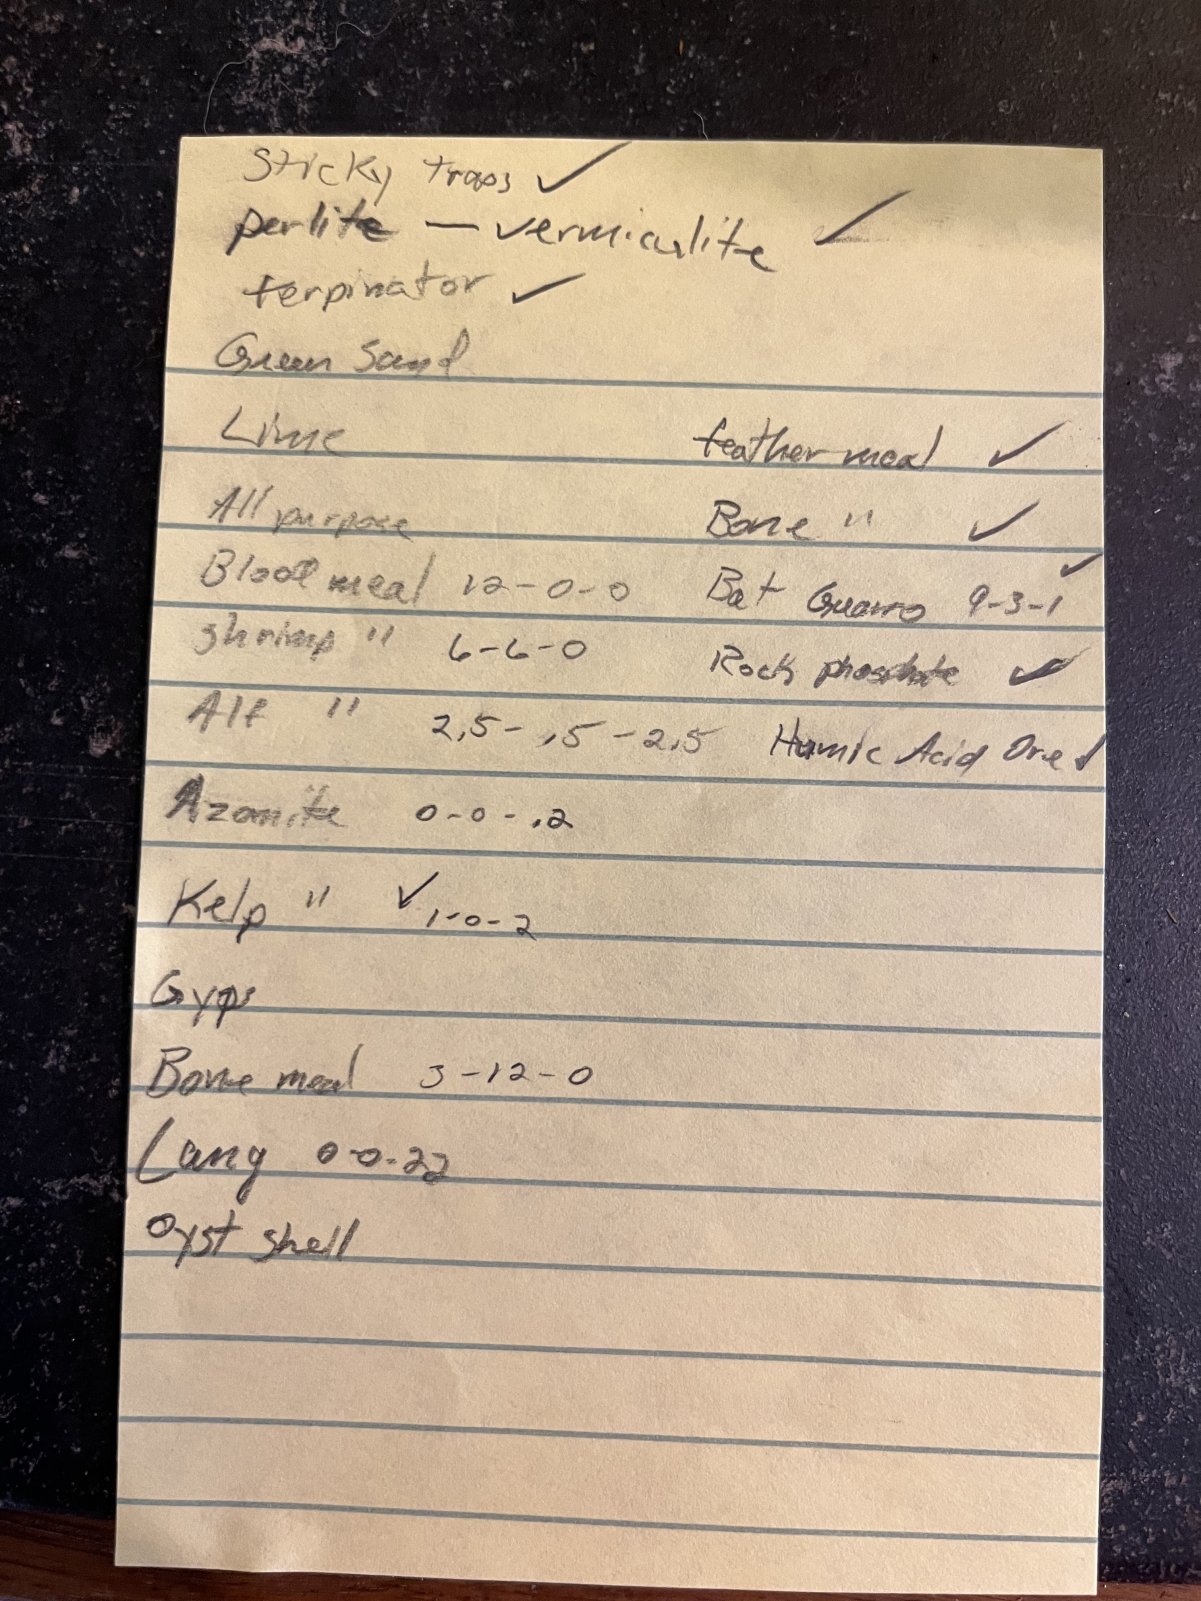 Sticky traps ✓
perlite — vermiculite ✓
terpinator ✓
Green Sand
Lime
feather meal ✓
All purpose
Bone " ✓
Blood meal 12-0-0
Bat Guano 9-3-1 ✓
shrimp " 6-6-0
Rock phosphate ✓
Alf " 2.5-.5-2.5
Humic Acid Ore ✓
Azomite 0-0-.2
Kelp " ✓ 1-0-2
Gyps
Bone meal 3-12-0
Lang 0-0-22
Oyst shell